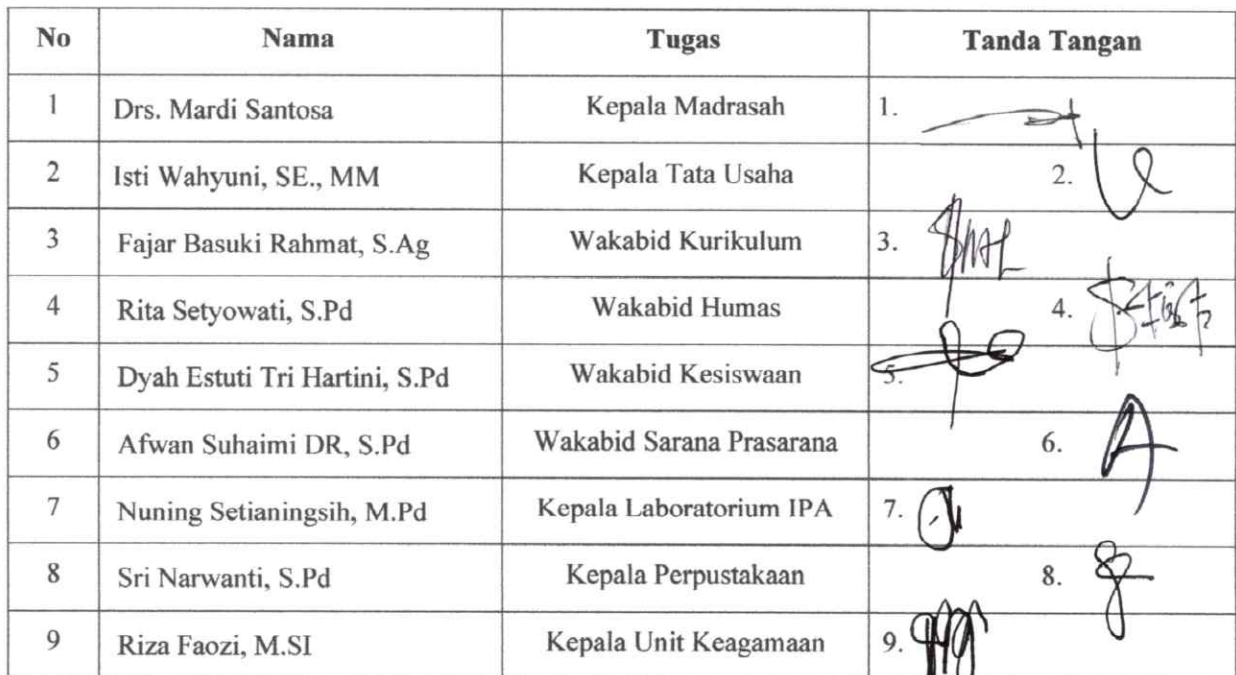 No Nama Tugas Tanda Tangan
1 Drs. Mardi Santosa Kepala Madrasah 1.
2 Isti Wahyuni, SE., MM Kepala Tata Usaha 2.
3 Fajar Basuki Rahmat, S.Ag Wakabid Kurikulum 3.
4 Rita Setyowati, S.Pd Wakabid Humas 4.
5 Dyah Estuti Tri Hartini, S.Pd Wakabid Kesiswaan 5.
6 Afwan Suhaimi DR, S.Pd Wakabid Sarana Prasarana 6.
7 Nuning Setianingsih, M.Pd Kepala Laboratorium IPA 7.
8 Sri Narwanti, S.Pd Kepala Perpustakaan 8.
9 Riza Faozi, M.SI Kepala Unit Keagamaan 9.